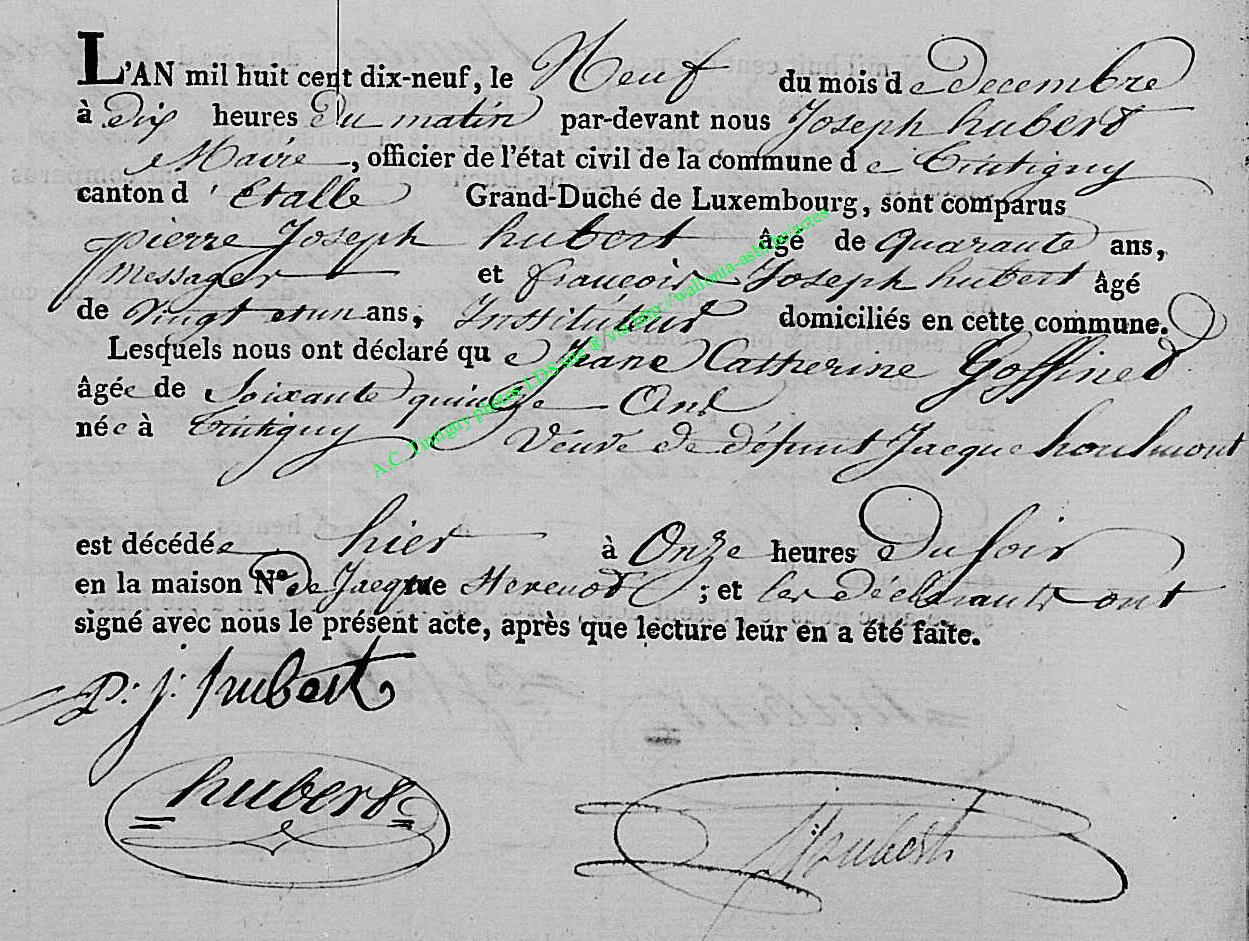 L'AN mil huit cent dix-neuf, le Neuf du mois de decembre
à dix heures Du matin par-devant nous Joseph hubert
Maire, officier de l'état civil de la commune de Tintigny
canton d'Etalle Grand-Duché de Luxembourg, sont comparus
pierre Joseph hubert âgé de Quarante ans,
messager et francois Joseph hubert âgé
de vingt et un ans, Instituteur domiciliés en cette commune.
Lesquels nous ont déclaré que Jeane Catherine Goffinet
âgée de Soixante quinze Ans
née à Tintigny Veuve de défunt Jacque houlmont
est décédée hier à Onze heures Du soir
en la maison No de Jacque ; et les déclarants ont
signé avec nous le présent acte, après que lecture leur en a été faite.
p: j: hubert
hubert
hubert
A.C. Tintigny photos LDS via http://wallonia-asbl.be/actes